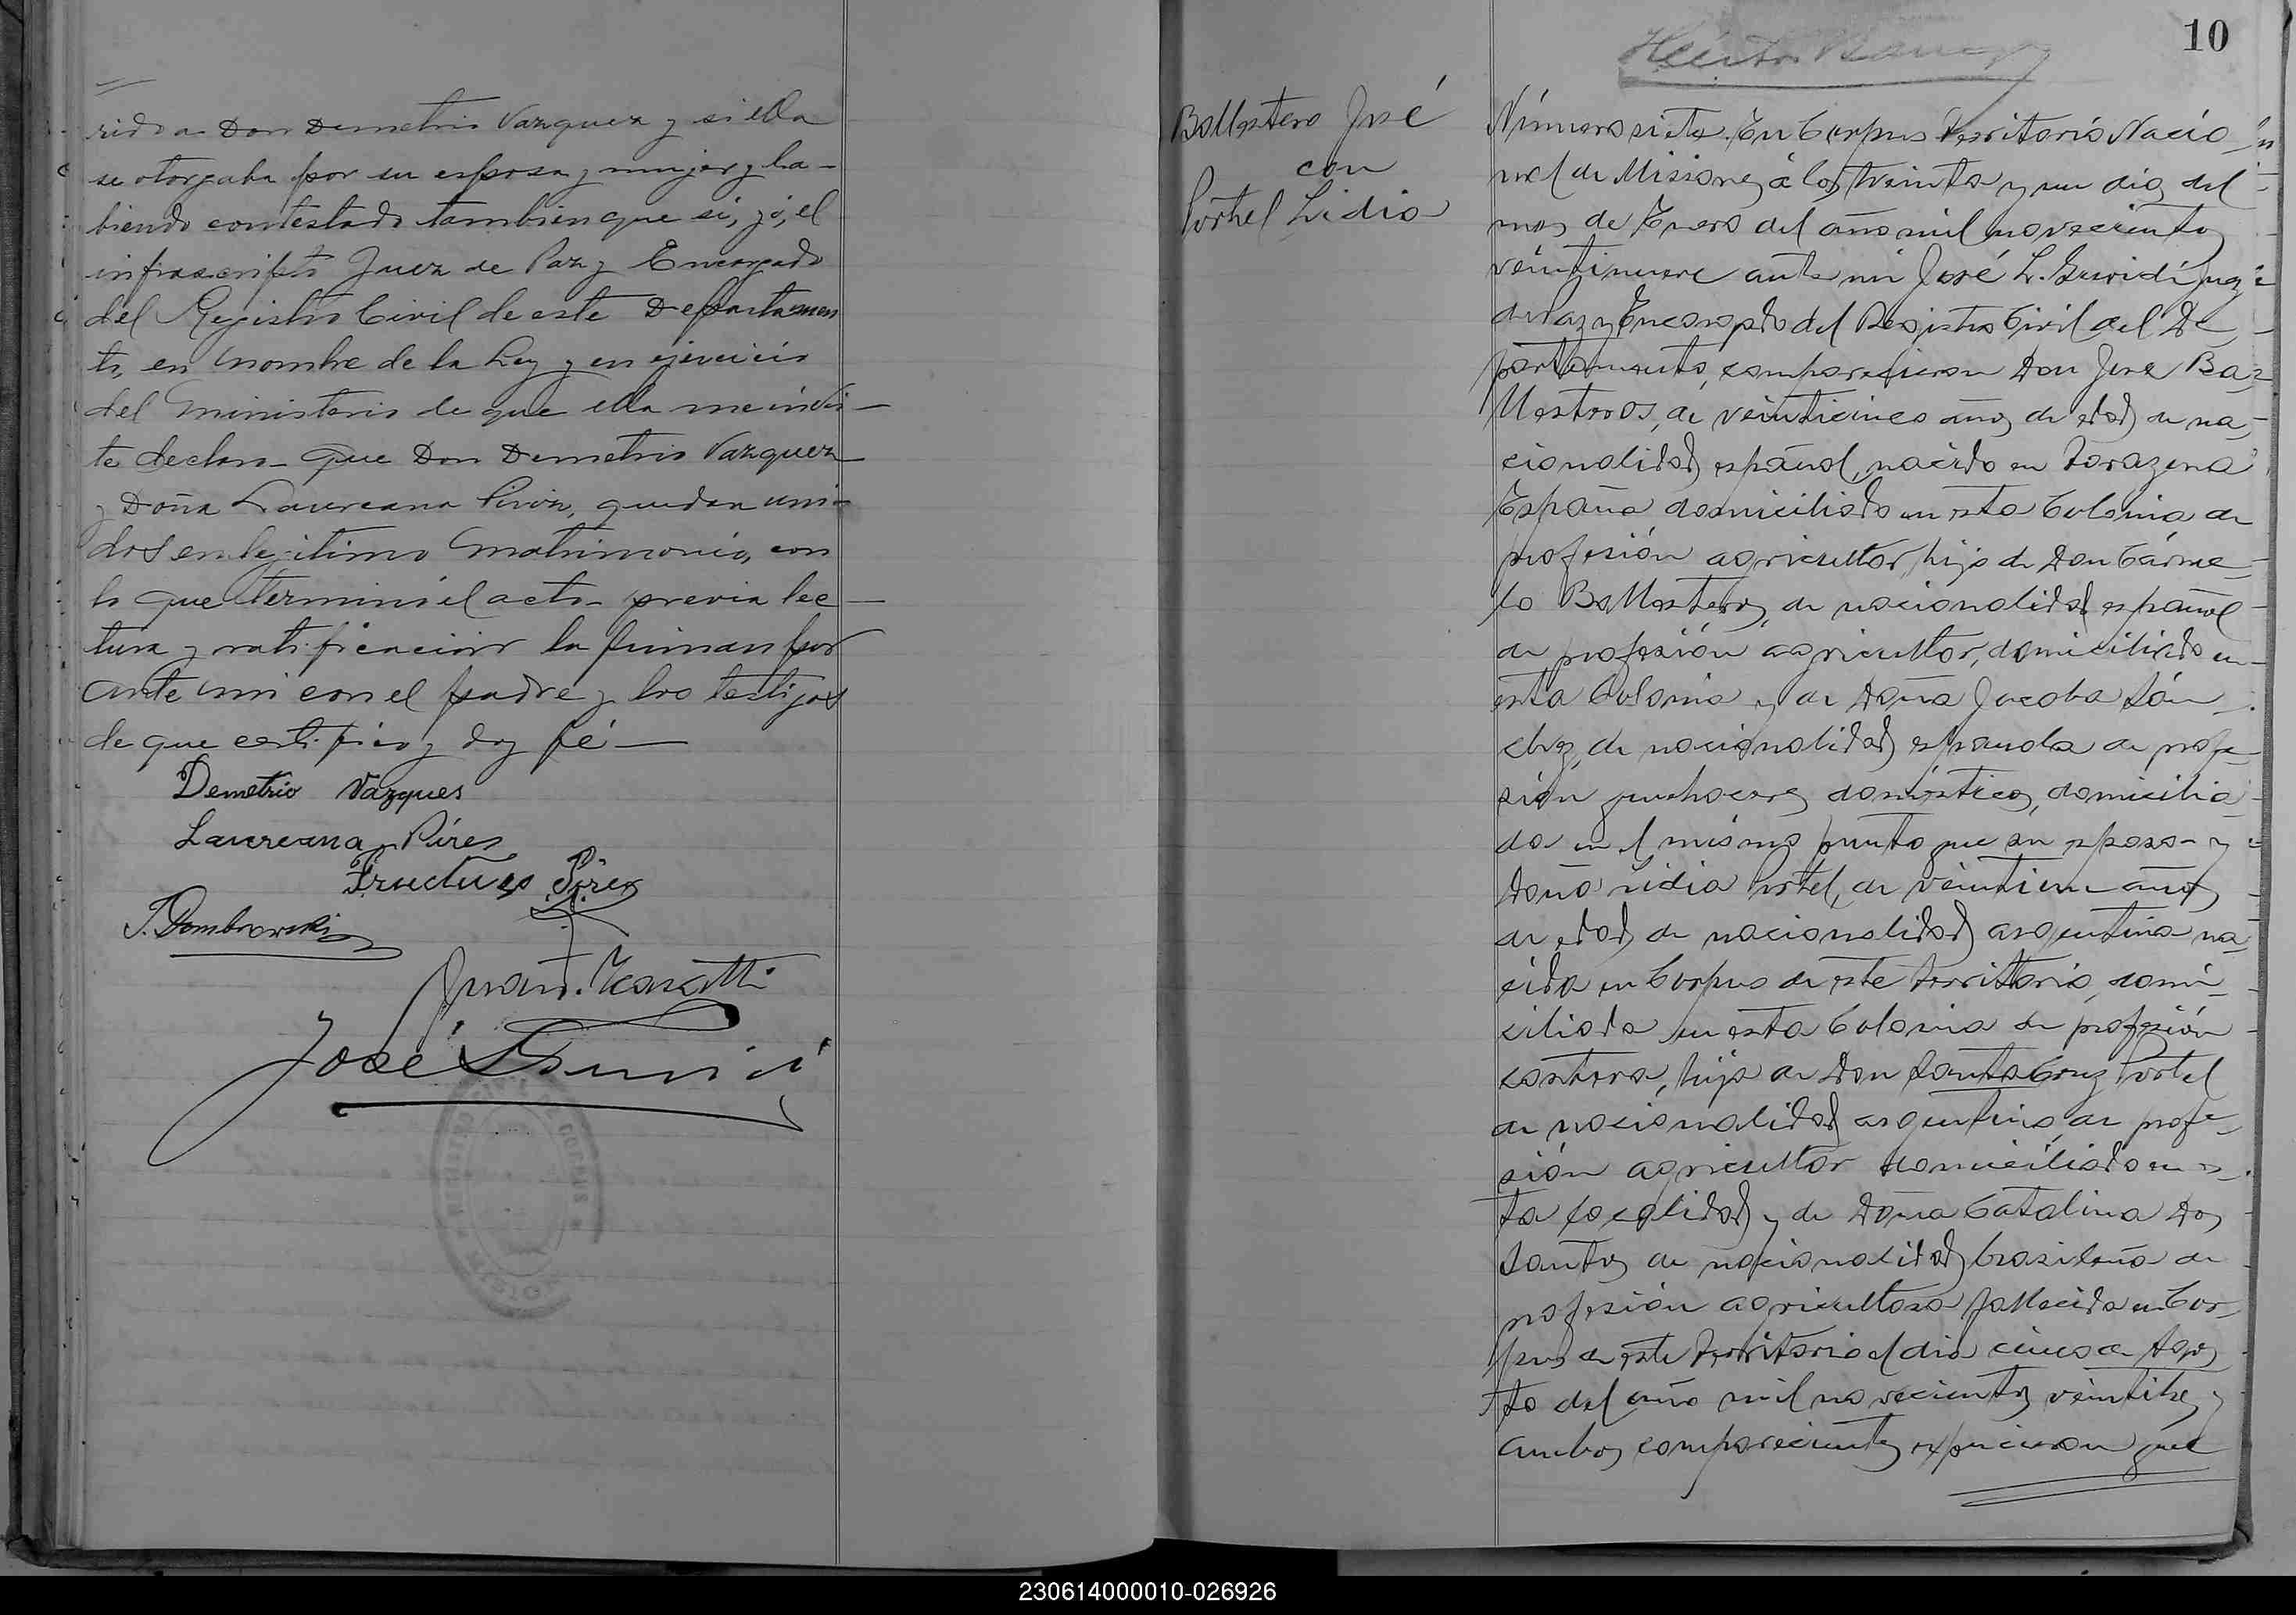 rido a Don Demetrio Vazquez y si ella
se otorgaba por su esposa y mujer y ha-
biendo contestado tambien que si, yó, el
infrascripto Juez de Paz y Encargado
del Registro Civil de este Departamen
to, en nombre de la Ley y en ejercicio
del Ministerio de que ella me invis-
te declaro que Don Demetrio Vazquez
y Doña Laureana Pirez, quedan uni-
dos en legitimo matrimonio, con
lo que terminó el acto previa lec-
tura y ratificacion la firman por
ante mi con el padre y los testigos
de que certifico y doy fé
Demetrio Vazques
Laureana Pires
Fructuoso Pires
Dombrowski
Juan
José L. Guridi
10
Ballestero José
con
Portel Lidia
Número siete. En Corpus Territorio Nacio-
nal de Misiones á los treinta y un dias del
mes de Enero del año mil novecientos
veintinueve ante mi José L. Guridi Juez
de Paz y Encargado del Registro Civil del De-
partamento, comparecieron Don José Ba-
llesteros, de veinticinco años de edad de na-
cionalidad español, nacido en Tarazona
España domiciliado en esta Colonia de
profesión agricultor, hijo de Don Cárme-
lo Ballesteros, de nacionalidad español
de profesión agricultor, domiciliado en
esta Colonia y de Doña Jacoba Sán-
chez, de nacionalidad española de profe-
sión quehaceres domésticos, domicilia-
da en el mismo punto que su esposo y
Doña Lidia Portel, de veintiun años
de edad, de nacionalidad argentina na-
cida en Corpus de este Territorio, domi-
ciliada en esta Colonia de profesión
costurera, hija de Don Santa Cruz Portel
de nacionalidad argentino, de profe-
sión agricultor domiciliado en es-
ta localidad y de Doña Catalina Dos
Santos de nacionalidad brasileña de
profesión agricultora fallecida en Cor-
pus de este Territorio el dia cinco de Agos
to del año mil novecientos veintitres y
ambos comparecientes expusieron que
230614000010-026926